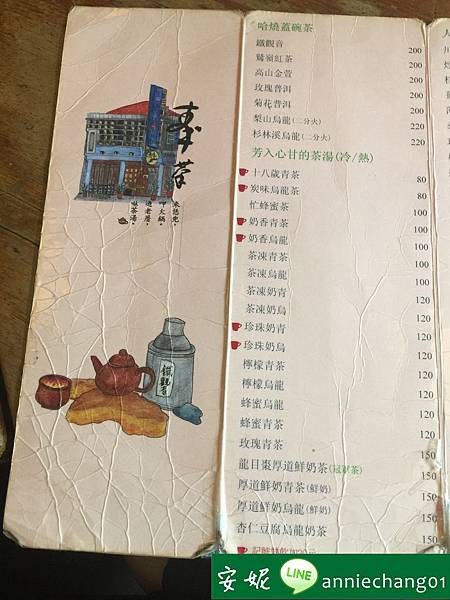 哈燒蓋碗茶
鐵觀音 200
鶯嶺紅茶 200
高山金萱 200
玫瑰普洱 200
菊花普洱 200
梨山烏龍(二分火) 220
杉林溪烏龍(二分火) 220
芳入心甘的茶湯(冷/熱)
十八歲青茶 80
炭味烏龍茶 80
忙蜂蜜茶 100
奶香青茶 100
奶香烏龍 100
茶凍青茶 100
茶凍烏龍 100
茶凍奶青 120
茶凍奶烏 120
珍珠奶青 120
珍珠奶烏 120
檸檬青茶 120
檸檬烏龍 120
蜂蜜烏龍 120
蜂蜜青茶 120
玫瑰青茶 120
龍目棗厚道鮮奶茶(冠軍茶) 150
厚道鮮奶青茶(鮮奶) 150
厚道鮮奶烏龍(鮮奶) 150
杏仁豆腐烏龍奶茶 150
鐵觀音
安妮 LINE anniechang01